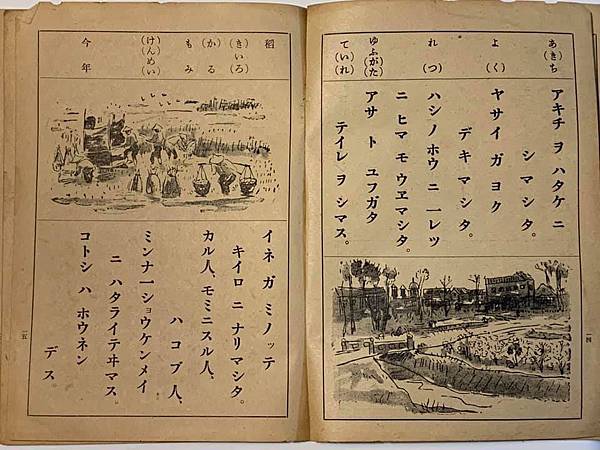 あ(き)ち
よ(く)
れ(つ)
ゆふ(がた)
て(い)れ
アキチ ヲ ハタケ ニ
シマシタ。
ヤサイ ガ ヨク
デキマシタ。
ハシノホウ ニ 一レツ
ニ ヒマ モ ウヱマシタ。
アサ ト ユフガタ
テイレ ヲ シマス。
一四
稻
(きいろ)
(か)る
もみ
(けんめい)
今年
イネ ガ ミノッテ
キイロ ニ ナリマシタ。
カル人、モミニスル人、
ハコブ人、
ミンナ一ショウケンメイ
ニ ハタライテヰマス。
コトシ ハ ホウネン
デス。
一五